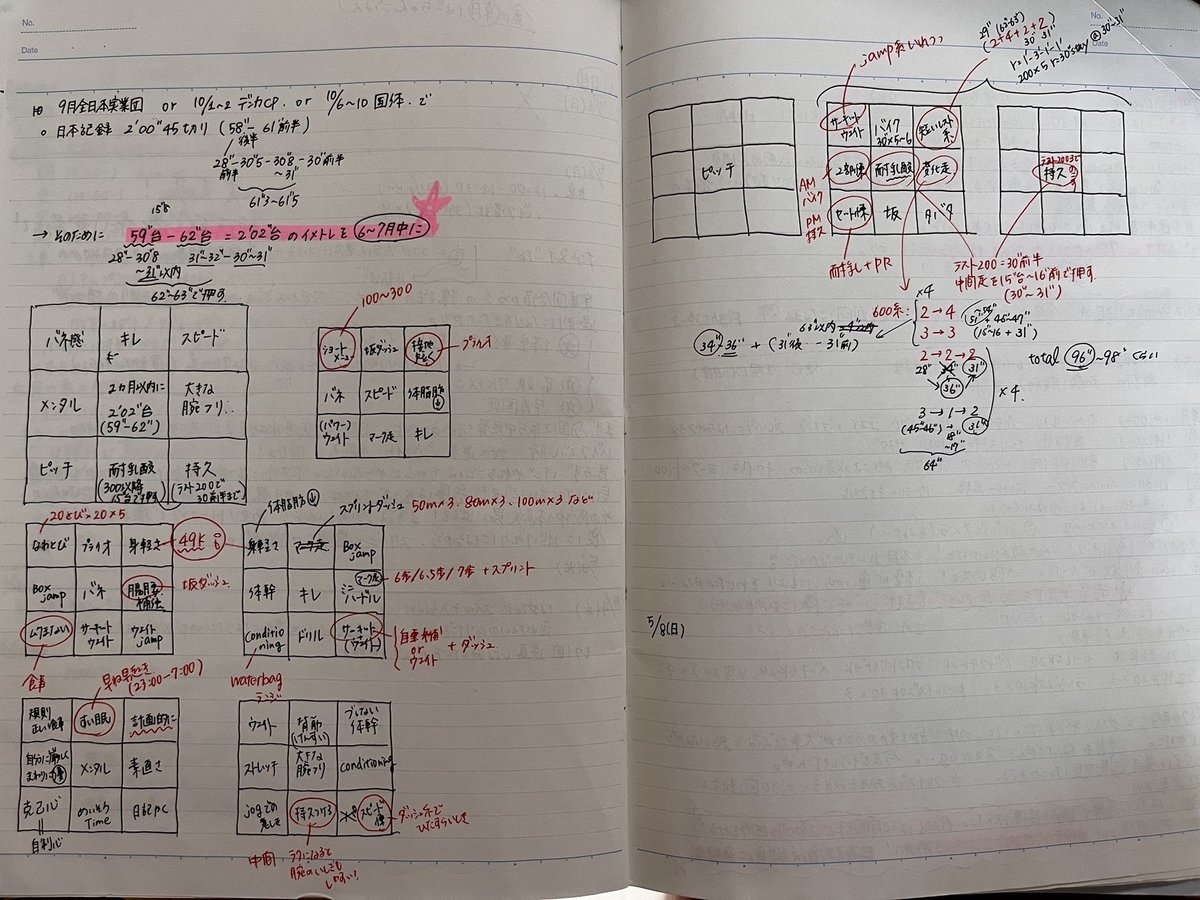 No.
Date
9月全日本実業団 or 10/1~2 デンカCP. or 10/6~10 国体. で
○ 日本記録 2'00"45切り (58"- 61"前半)
後半
28"-30"5-30"8-30"前半
前半 ~31"
61"3~61"5
15"8
→ そのために 59"台-62"台 = 2'02"台 のイメトレを 6~7月中に
28"-30"8 31"-32"-30"~31"
~31"以内
62"~63"で押す.
バネ感 キレ スピード
メンタル 2カ月以内に 2'02"台 (59"-62") 大きな腕フリ
ピッチ 耐乳酸 (300以降 15"台で押す) 持久 (テスト200で 30"前半まで)
100~300
ショートメニュー 坂ダッシュ 接地 プライオ
バネ スピード 体脂肪↓
(パワー)ウェイト マーク走 キレ
20とび=20×5
なわとび プライオ 身軽さ 49kg
Box jamp バネ 腸腰 補強 坂ダッシュ
ムダ食い サーキットウェイト ウェイトjamp
食事
体脂肪↓ スプリントダッシュ 50m×3. 80m×3. 100m×3 など
身軽さ マーク走 Box jamp
体幹 キレ マーク走 ミニハードル 6歩/6.5歩/7歩 + スプリント
conditioning ドリル サーキット(ウェイト) 自重補 or ウェイト + ダッシュ
waterbag
早ね早起き (23:00-7:00)
規則正しい食事 すい眠 計画的に
自分に厳しくまわりに優 メンタル 素直さ
克己心 めいそうTime 日記かく
自制心
ウェイト 背筋(けんすい) ブレない体幹
ストレッチ 大きな腕フリ conditioning
jogでの意しき 持久つける スピード練 ダッシュ系でひたすらいしき
中間 ラクになると腕のいしきも
No.
Date
29" (62"-63")
(2+4+2+2)
30" 31"
r=1'-3'-1'-1'
200×5 r=30"stay @30"~31"
jamp系いれつつ
ピッチ
サーキットウェイト バイク 30"×5~6 短いレスト系.
2部練 耐乳酸 変化走.
セット練 坂 タバタ
AM バイク
PM 持久
耐乳+PR
テスト200まで
持久
テスト200=30"前半
中間走を15"台~16"前で押す.
(30"~31")
×4
600系: 2→4 (+46"~47")
3→3 (15"~16 + 31")
34"~36" + (31"後--31"前)
63"以内
2→2→2
28" 34" 31"
36"
×4.
3→1→2
(45"~46") + 18" ~17" 36"
64"
total 96"~98" くらい
5/8(日)